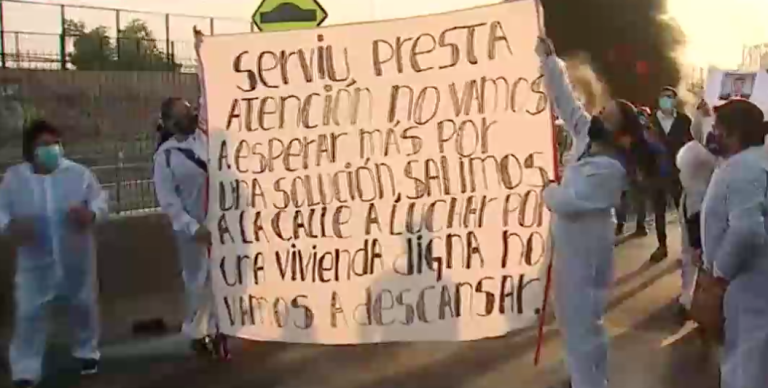 Serviu, presta
atención no vamos
a esperar más por
una solución, salimos
a la calle a luchar por
una vivienda digna no
vamos a descansar.